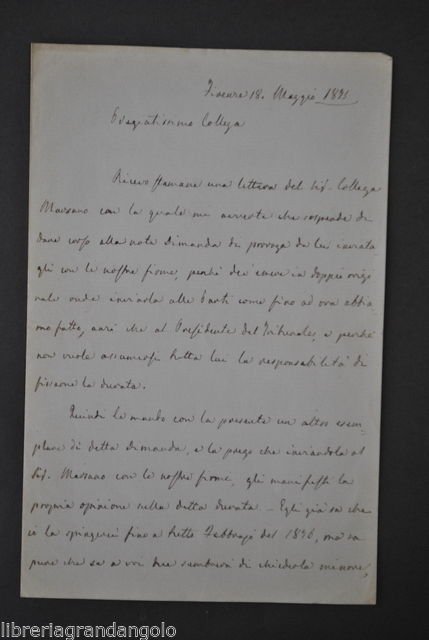 Firenze 18. Maggio 1895
Pregiatissimo Collega
Ricevo stamane una lettera del Sig. Collega
Marsano con la quale mi avverte che sospende di
dare corso alla nota dimanda di proroga da lui inviata
gli con le nostre firme, perchè dev'essere in doppio origi
nale onde inviarla alle Parti come fino ad ora abbia
mo fatto, anzi che al Presidente del Tribunale, e perchè
non vuole assumersi tutta lui la responsabilità di
fissarne la durata.
Quindi le mando con la presente un altro esem
plare di detta dimanda, e la prego che inviandola al
Sig. Marsano con le nostre firme, gli manifesti la
propria opinione sulla detta durata. – Egli già sa che
io la spingerei fino a tutto Febbrajo del 1896, ma sa
pure che se a voi due sembrerà di chiederla minore,
libreriagrandangolo